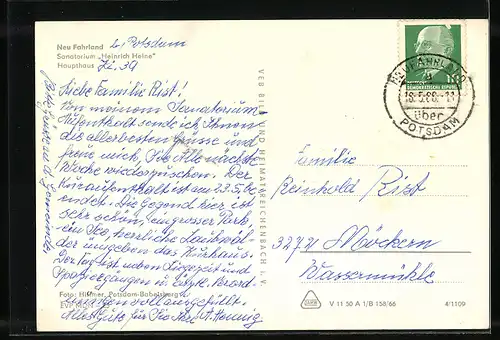 Neu Fahrland b. Potsdam
Sanatorium „Heinrich Heine"
Haupthaus Zi. 39
Liebe Familie Rist!
Von meinem Sanatorium
Aufenthalt sende ich Ihnen
die allerbesten Grüsse und
freue mich, Sie alle nächste
Woche wiederzusehen. Der
Kuraufenthalt ist am 23.5. be
endet. Die Gegend hier ist
sehr schön, ein grosser Park,
ein See, herrliche Laubwäl-
der umgeben das Kurhaus.
Der Tag ist neben Liegezeit und
Spaziergängen
ausgefüllt.
Alles Gute für Sie
Foto: Hilmer, Potsdam-Babelsberg
VEB BILD UND HEIMAT REICHENBACH i. V.
DEUTSCHE DEMOKRATISCHE REPUBLIK
NEU FAHRLAND
über
POTSDAM
Familie
Reinhold Rist
32721 Möckern
Wassermühle
V 11 50 A 1/B 138/66
4/1109